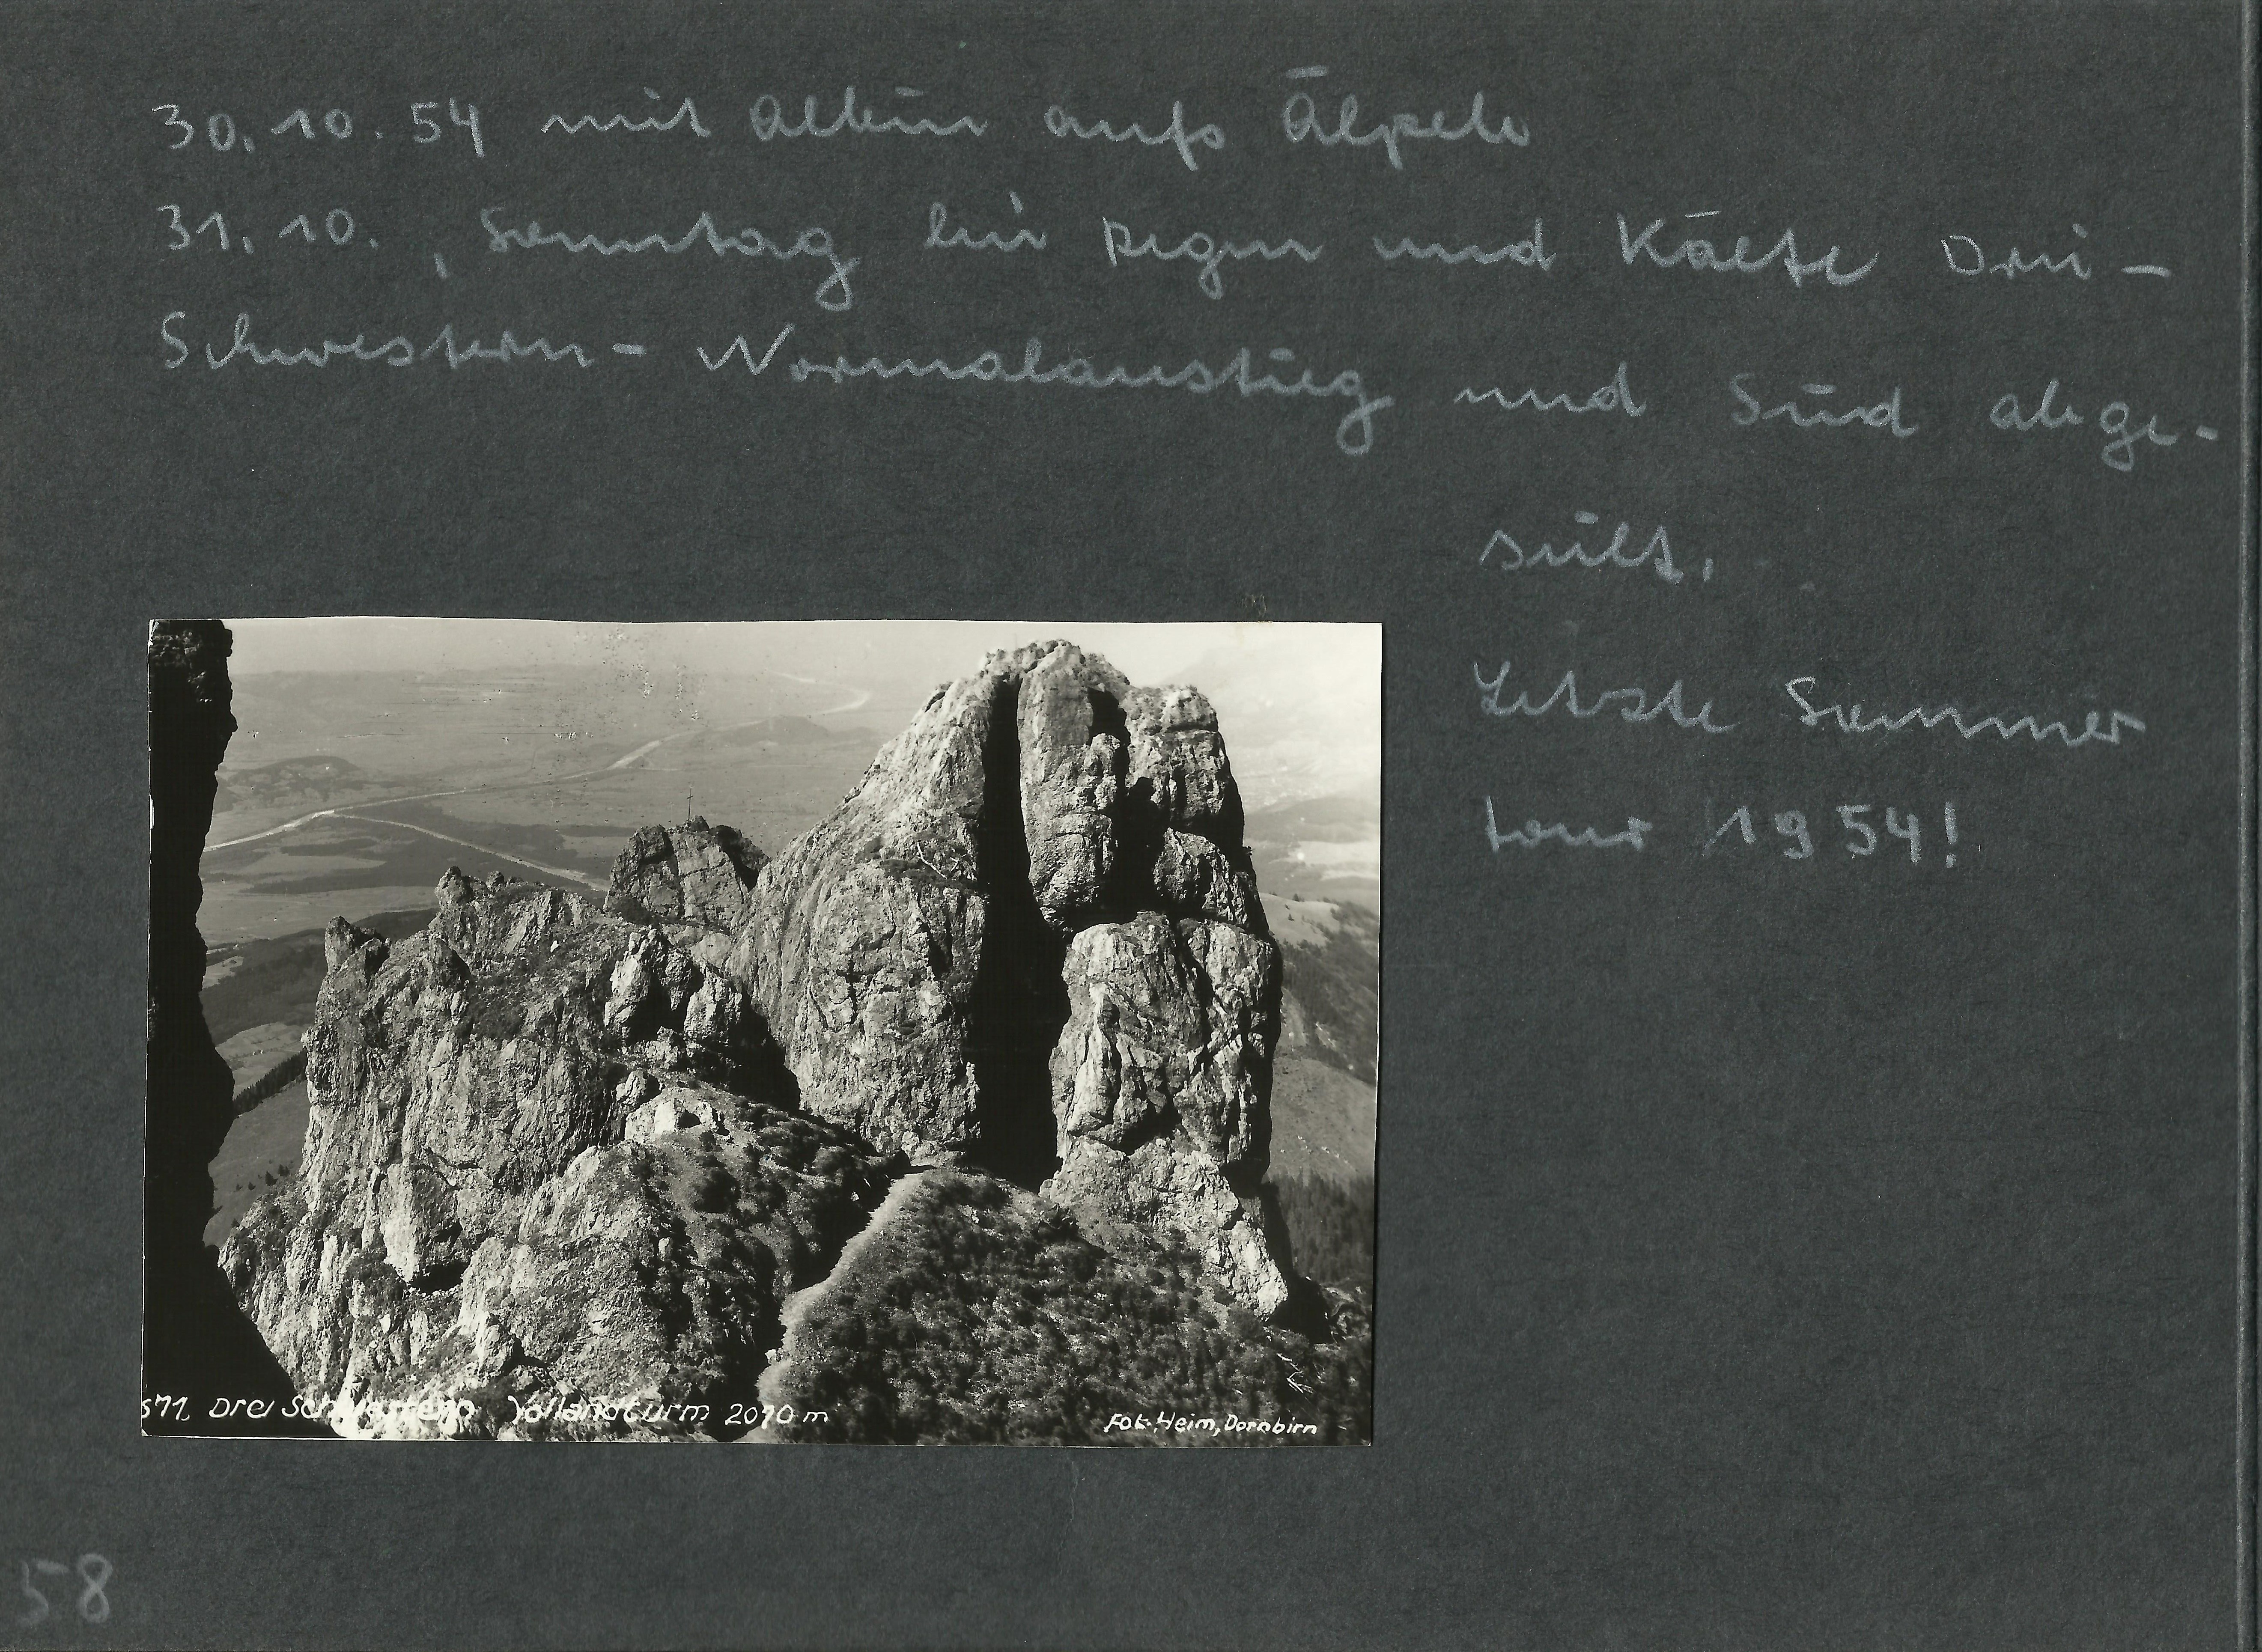 30.10.54 mit Albin aufs Älpele
31.10., Sonntag bei Regen und Kälte Drei-
Schwestern- Normalanstieg und Süd abge-
seilt.
Letzte Sommer
tour 1954!
571. Drei Schwestern Vollandturm 2010 m
Fot. Heim, Dornbirn
58